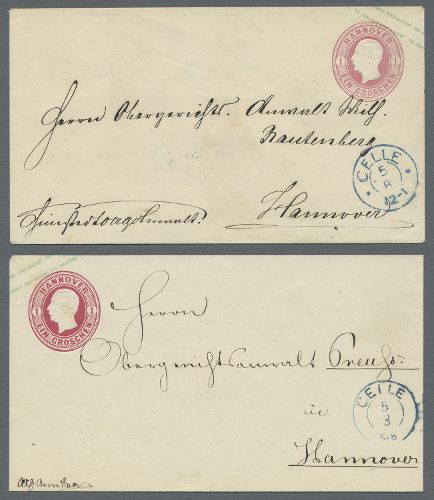 HANNOVER
1 1
EIN GROSCHEN
Herrn Obergerichts. Anwalt Wilh.
Rautenberg
CELLE
5
8
12-1
Hannover
HANNOVER
1 1
EIN GROSCHEN
Herrn
Obergerichtsanwalt Preuss.
CELLE
5
3
5-6
in
Hannover